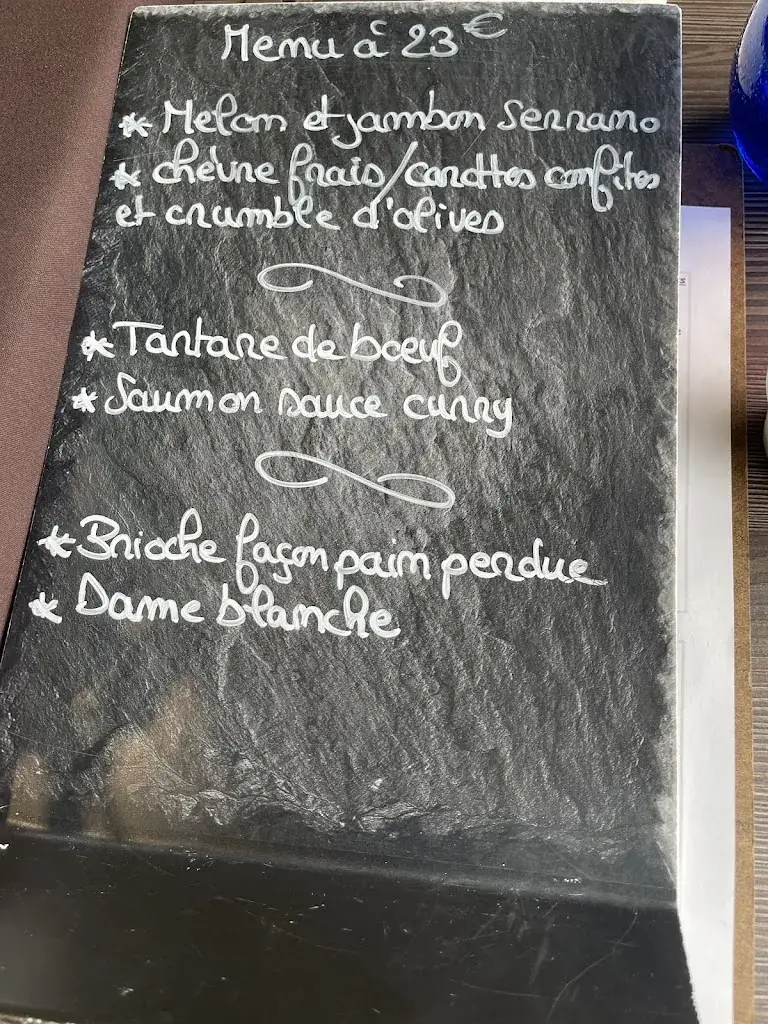 Menu à 23€
* Melon et jambon Serrano
* chèvre frais/carottes confites
et crumble d'olives
* Tartare de bœuf
* Saumon sauce curry
* Brioche façon pain perdue
* Dame blanche